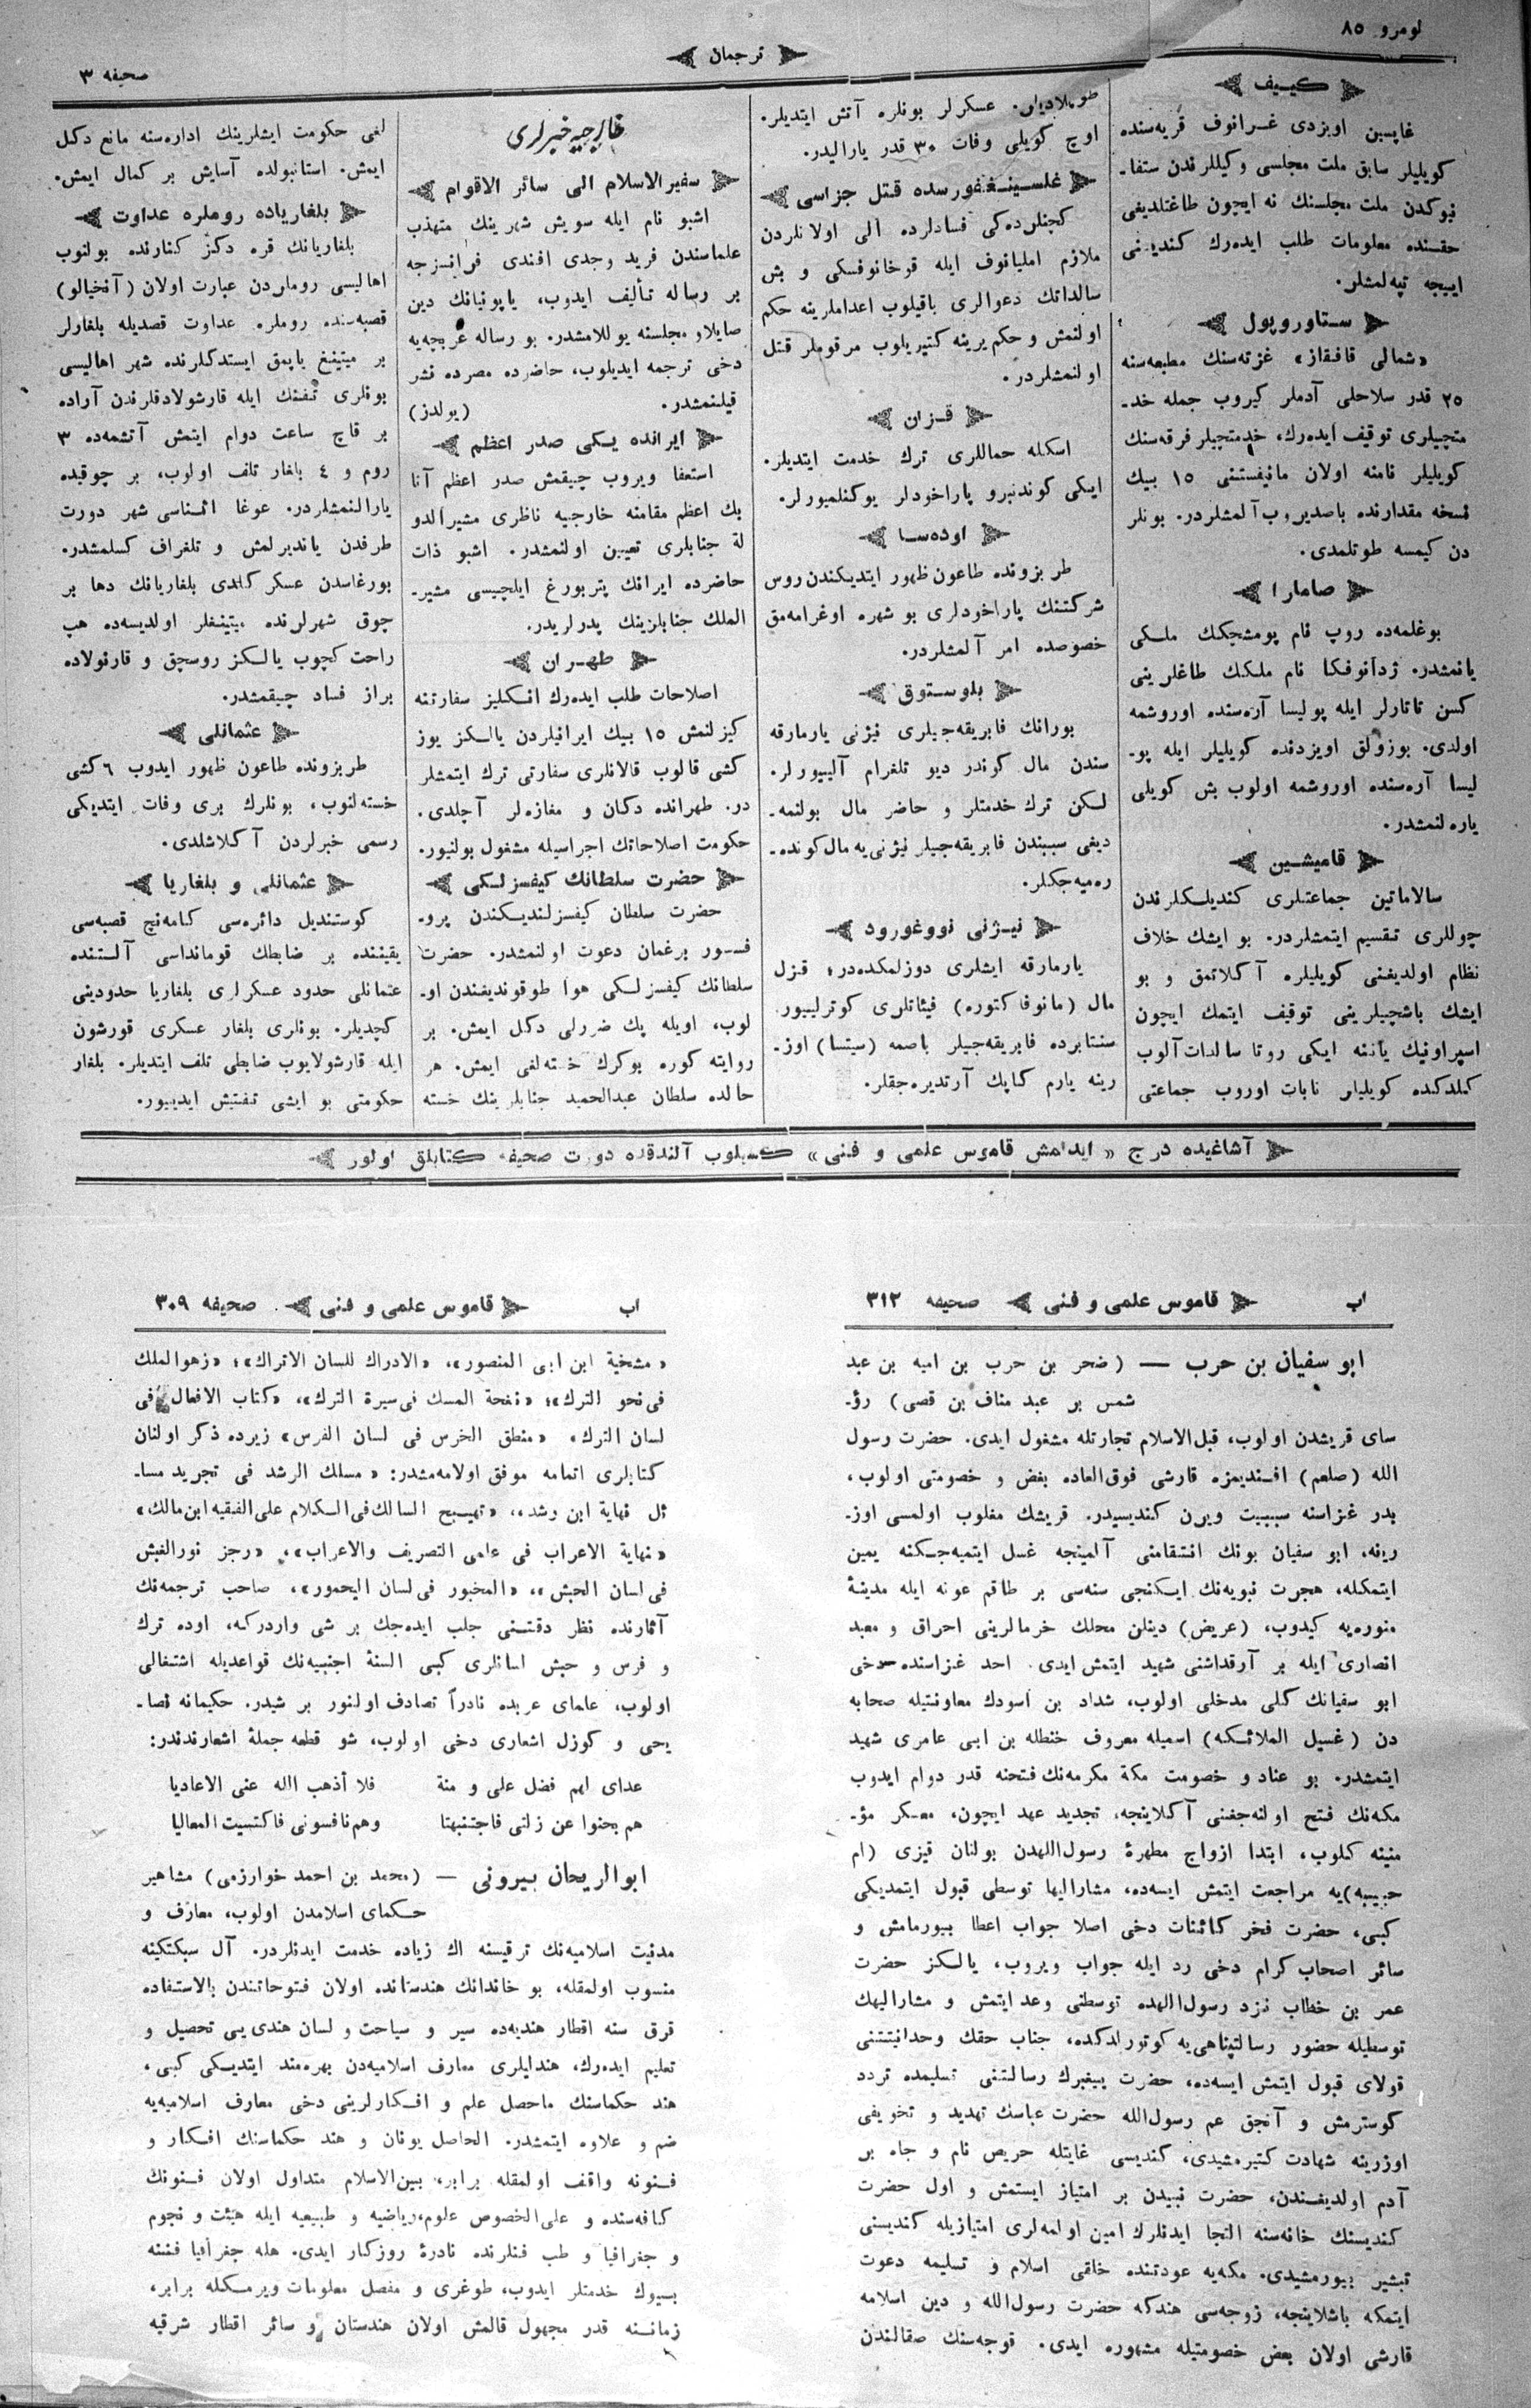 نومرو ٨٥
ترجمان
صحیفه ٣
كییف
غاپسین اویزدی غرانوف قریه‌سنده
كویلیلر سابق ملت مجلسی وكیللرندن ستفا-
نیوكدن ملت مجلسنك نه ایچون طاغتلدیغی
حقنده معلومات طلب ایده‌رك كندیینی
اییجه تپه‌لمشلر.
ستاوروپول
«شمالی قافقاز» غزته‌سنك مطبعه‌سنه
٢٥ قدر سلاحلی آدملر كیروب جمله خد-
متچیلری توقیف ایده‌رك، خدمتچیلر فرقه‌سنك
كویلیلر نامنه اولان مانیفستنی ١٥ بیك
نسخه مقدارنده باصدیروب آلمشلردر. بونلر
دن كیمسه طوتلمدی.
صامارا
بوغلمه‌ده روپ نام پومشچكك ملكی
یانمشدر. ژدانوفكا نام ملكك طاغلرینی
كسن تاتارلر ایله پولیسا آره‌سنده اوروشمه
اولدی. بوزولق اویزدنده كویلیلر ایله پو-
لیسا آره‌سنده اوروشمه اولوب بش كویلی
یاره‌لنمشدر.
قامیشین
سالاماتین جماعتلری كندیلكلرندن
چوللری تقسیم ایتمشلردر. بو ایشك خلاف
نظام اولدیغنی كویلیلره آكلاتمق و بو
ایشك باشچیلرینی توقیف ایتمك ایچون
اسپراونیك یاننه ایكی روتا سالدات آلوب
كلدكده كویلیلر نابات اوروب جماعتی
طوپلادیلر. عسكرلر بونلره آتش ایتدیلر.
اوچ كویلی وفات ٣٠ قدر یارالیدر.
غلسینغفورسده قتل جزاسی
كچنلرده‌كی فسادلرده الی اولانلردن
ملازم املیانوف ایله قوخانوفسكی و بش
سالداتك دعوالری باقیلوب اعداملرینه حكم
اولنمش و حكم یرینه كتیریلوب مرقوملر قتل
اولنمشلردر.
قزان
اسكله حماللری ترك خدمت ایتدیلر.
ایكی كوندنبرو پاراخودلر یوكنلمیورلر.
اوده‌سا
طربزونده طاعون ظهور ایتدیكندن روس
شركتنك پاراخودلری بو شهره اوغرامه‌مق
خصوصده امر آلمشلردر.
بلوستوق
بورانك فابریقه‌جیلری نیژنی یارمارقه
سندن مال كوندر دیو تلغرام آلییورلر.
لكن ترك خدمتلر و حاضر مال بولنمه-
دیغی سببندن فابریقه‌جیلر نیژنی‌یه مال كونده-
ره‌میه‌جكلر.
نیژنی نووغورود
یارمارقه ایشلری دوزلمكده‌در؛ قزل
مال (مانوفاكتوره) فیئاتلری كوترلییور.
سنتابرده فابریقه‌جیلر باصمه (سیتسا) اوز-
رینه یارم كاپك آرتدیره‌جقلر.
خارجیه خبرلری
سفیرالاسلام الی سائر الاقوام
اشبو نام ایله سویش شهرینك متهذب
علماسندن فرید وجدی افندی فرانسزجه
بر رساله تألیف ایدوب، یاپونیانك دین
صایلاو مجلسنه یوللامشدر. بو رساله عربچه‌یه
دخی ترجمه ایدیلوب، حاضرده مصرده نشر
قیلنمشدر. (یولدز)
ایرانده یكی صدر اعظم
استعفا ویروب چیقمش صدر اعظم آتا
بك اعظم مقامنه خارجیه ناظری مشیرالدو
لة جنابلری تعیین اولنمشدر. اشبو ذات
حاضرده ایرانك پتربورغ ایلچیسی مشیر-
الملك جنابلرینك پدرلریدر.
طهران
اصلاحات طلب ایده‌رك انكلیز سفارتنه
كیزلنمش ١٥ بیك ایرانیلردن یالكز یوز
كشی قالوب قالانلری سفارتی ترك ایتمشلر
در. طهرانده دكان و مغازه‌لر آچلدی.
حكومت اصلاحاتك اجراسیله مشغول بولنیور.
حضرت سلطانك كیفسزلكی
حضرت سلطان كیفسزلندیكندن پرو-
فسور برغمان دعوت اولنمشدر. حضرت
سلطانك كیفسزلكی هوا طوقوندیغندن او-
لوب، اویله پك ضررلی دكل ایمش. بر
روایته كوره بوكرك خسته‌لغی ایمش. هر
حالده سلطان عبدالحمید جنابلرینك خسته
لغی حكومت ایشلرینك اداره‌سنه مانع دكل
ایمش. استانبولده آسایش بر كمال ایمش.
بلغاریاده روملره عداوت
بلغاریانك قره دكز كنارنده بولنوب
اهالیسی روملردن عبارت اولان (آنخیالو)
قصبه‌سنده روملره عداوت قصدیله بلغارلر
بر میتینغ یاپمق ایستدكلرنده شهر اهالیسی
بونلری تفنك ایله قارشولادقلرندن آراده
بر قاچ ساعت دوام ایتمش آتشمه‌ده ٣
روم و ٤ بلغار تلف اولوب، بر چوقیده
یارالنمشلردر. غوغا اثناسی شهر دورت
طرفدن یاندیرلمش و تلغراف كسلمشدر.
بورغاسدن عسكر كلدی بلغاریانك دها بر
چوق شهرلرنده میتینغلر اولدیسه‌ده هپ
راحت كچوب یالكز روسچق و قارنولاده
براز فساد چیقمشدر.
عثمانلی
طربزونده طاعون ظهور ایدوب ٦ كشی
خسته‌لنوب، بونلرك بری وفات ایتدیكی
رسمی خبرلردن آكلاشلدی.
عثمانلی و بلغاریا
كوستندیل دائره‌سی كامه‌نچ قصبه‌سی
یقیننده بر ضابطك قومانداسی آلتنده
عثمانلی حدود عسكرلری بلغاریا حدودینی
كچدیلر. بونلری بلغار عسكری قورشون
ایله قارشولایوب ضابطی تلف ایتدیلر. بلغار
حكومتی بو ایشی تفتیش ایدییور.
آشاغیده درج « ایدلمش قاموس علمی و فنی» كسیلوب آلندقده دورت صحیفه كتابلق اولور
اب قاموس علمی و فنی صحیفه ٣١٢
ابو سفیان بن حرب — (ضحر بن حرب بن امیه بن عبد
شمس بر عبد مناف بن قصی) رؤ-
سای قریشدن اولوب، قبل‌الاسلام تجارتله مشغول ایدی. حضرت رسول
الله (صلعم) افندیمزه قارشی فوق‌العاده بغض و خصومتی اولوب،
بدر غزاسنه سببیت ویرن كندیسیدر. قریشك مغلوب اولمسی اوز-
رینه، ابو سفیان بونك انتقامنی آلمینجه غسل ایتمیه‌جكنه یمین
ایتمكله، هجرت نبویه‌نك ایكنجی سنه‌سی بر طاقم عونه ایله مدینهٔ
منوره‌یه كیدوب، (عریض) دینلن محلك خرمالرینی احراق و معبد
انصاری ایله بر آرقداشنی شهید ایتمش ایدی. احد غزاسنده دخی
ابو سفیانك كلی مدخلی اولوب، شداد بن اسودك معاونتیله صحابه
دن (غسیل الملائكه) اسمیله معروف خنطله بن ابی عامری شهید
ایتمشدر. بو عناد و خصومت مكهٔ مكرمه‌نك فتحنه قدر دوام ایدوب
مكه‌نك فتح اولنه‌جغنی آكلاینجه، تجدید عهد ایچون، معسكر مؤ-
منینه كلوب، ابتدا ازواج مطهرهٔ رسول‌اللهدن بولنان قیزی (ام
حبیبه)یه مراجعت ایتمش ایسه‌ده، مشارالیها توسطی قبول ایتمدیكی
كبی، حضرت فخر كائنات دخی اصلا جواب اعطا بیورمامش و
سائر اصحاب كرام دخی رد ایله جواب ویروب، یالكز حضرت
عمر بن خطاب نزد رسول‌اللهده توسطنی وعد ایتمش و مشارالیهك
توسطیله حضور رسالتپناهی‌یه كوتورلدكده، جناب حقك وحدانیتنی
قولای قبول ایتمش ایسه‌ده، حضرت پیغبرك رسالتنی تسلیمده تردد
كوسترمش و آنجق عم رسول‌الله حضرت عباسك تهدید و تخویفی
اوزرینه شهادت كتیرمشیدی، كندیسی غایتله حریص نام و جاه بر
آدم اولدیغندن، حضرت نبیدن بر امتیاز ایستمش و اول حضرت
كندیسنك خانه‌سنه التجا ایدنلرك امین اولمه‌لری امتیازیله كندیسنی
تبشیر بیورمشیدی. مكه‌یه عودتنده خلقی اسلام و تسلیمه دعوت
ایتمكه باشلاینجه، زوجه‌سی هندكه حضرت رسول‌الله و دین اسلامه
قارشی اولان بغض خصومتیله مشهوره ایدی. قوجه‌سنك صقالندن
اب قاموس علمی و فنی صحیفه ٣٠٩
«مشخیة ابن ابی المنصور»، «الادراك للسان الاتراك»؛ «زهوالملك
فی نحو الترك»؛ «نفحة المسك فی سیرة الترك»، «كتاب الافعال فی
لسان الترك» «منطق الخرس فی لسان الفرس» زیرده ذكر اولنان
كتابلری اتمامه موفق اولامه‌مشدر: «مسلك الرشد فی تجرید مسا-
ئل نهایة ابن رشد»، «تهییج السالك فی الكلام علی الفیقیه ابن مالك»
«نهایة الاعراب فی علمی التصریف والاعراب»، «رجز نورالغبش
فی لسان الحبش»، «المخبور فی لسان الیحمور»، صاحب ترجمه‌نك
آثارنده نظر دقتنی جلب ایده‌جك بر شی واردركه، اوده ترك
و فرس و حبش لسانلری كبی السنهٔ اجنبیه‌نك قواعدیله اشتغالی
اولوب، علمای عربده نادراً تصادف اولنور بر شیدر. حكیمانه نصا-
یحی و كوزل اشعاری دخی اولوب، شو قطعه جملهٔ اشعارندندر:
عدای لهم فضل علی و منة فلا أذهب الله عنی الاعادیا
هم بحثوا عن زلتی فاجتنبتها وهم نافسونی فاكتسیت المعالیا
ابوالریحان بیرونی — (محمد بن احمد خوارزمی) مشاهیر
حكمای اسلامدن اولوب، معارف و
مدنیت اسلامیه‌نك ترقیسنه اك زیاده خدمت ایدنلردر. آل سبكتكینه
منسوب اولمقله، بو خاندانك هندستانده اولان فتوحاتندن بالاستفاده
قرق سنه اقطار هندیه‌ده سیر و سیاحت و لسان هندی‌یی تحصیل و
تعلیم ایده‌رك، هندلیلری معارف اسلامیه‌دن بهره‌مند ایتدیكی كبی،
هند حكماسنك ماحصل علم و افكارلرینی دخی معارف اسلامیه‌یه
ضم و علاوه ایتمشدر. الحاصل یونان و هند حكماسنك افكار و
فنوننه واقف اولمقله برابر، بین‌الاسلام متداول اولان فنونك
كافه‌سنده و علی‌الخصوص علوم ریاضیه و طبیعیه ایله هیئت و نجوم
و جغرافیا و طب فنلرنده نادرهٔ روزكار ایدی. هله جغرافیا فننه
بیوك خدمتلر ایدوب، طوغری و مفصل معلومات ویرمكله برابر،
زماننه قدر مجهول قالمش اولان هندستان و سائر اقطار شرقیه